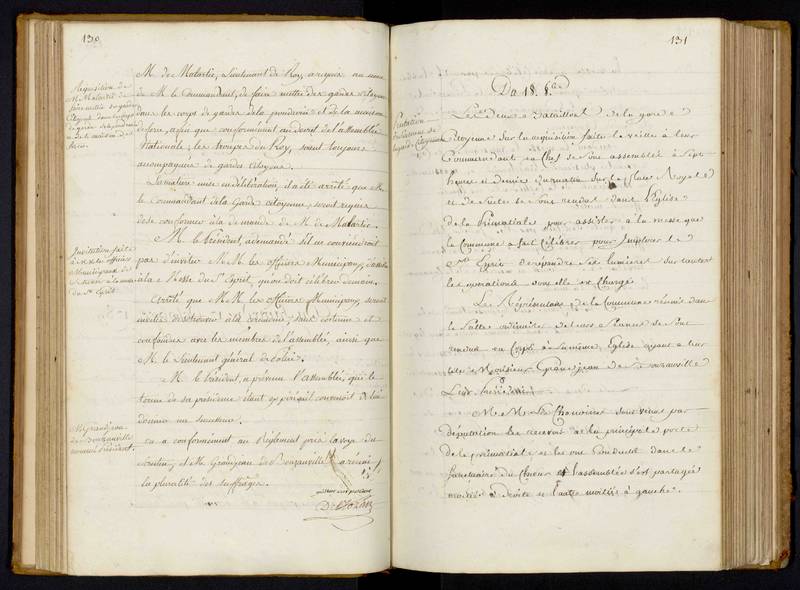 130
Réquisition de
M. de Malartie, Lieutenant de Roy, a requis au nom
de M. le Commandant, de faire mettre des gardes citoyens
dans les corps de gardes de la poudrerie et de la maison
de force, afin que conformément au decret de l'assemblée
Nationale, les troupes du Roy, soient toujours
accompagnées de gardes citoyens.
La matière mise en délibération, il a été arrêté que M.
le Commandant de la Garde citoyenne, seroit requis
de se conformer à la demande de M. de Malartie.
Invitation faite
à M.M. les officiers
Municipaux de
se trouver à la messe
du St. Esprit
M. le Président, a demandé s'il ne conviendroit
pas d'inviter M.M. les officiers Municipaux, d'assister
à la Messe du St. Esprit, qu'on doit célébrer demain.
Arrêté que M.M. les officiers Municipaux, seront
invités de se trouver à la cérémonie, sans costume et
confondus avec les membres de l'assemblée, ainsi que
M. le Lieutenant général de Police.
M. le Président, a prévenu l'assemblée, que le
terme de sa présidence étant expiré, il convenoit de lui
donner un successeur.
M. Grandjean
de Bouzanville
nommé Président.
On a conformément au Règlement pris la voye du
Scrutin, et M. Grandjean de Bouzanville a réuni
la pluralité des suffrages.
131
Du 18.
Les deux Bataillons de la garde
Citoyenne sur la réquisition faite la veille à leur
Commandant en Chef se sont assemblés à Sept
heures et demie du matin sur la place Royale
et de suite se sont rendus dans l'Eglise
de la Primatiale pour assister à la messe que
la Commune a fait célébrer pour Implorer le
St. Esprit de répandre ses lumières sur toutes
les opérations dont elle est Chargé
Les Représentans de la Commune réunis dans
la Salle ordinaire de leurs Séances se sont
rendus en Corps à la même Eglise ayant à leur
tête Monsieur Grandjean de Bouzanville
Leur Président
M.M. Les Chanoines sont venus par
députation les recevoir à la principale porte
de la primatiale et les ont Conduits dans le
Sanctuaire du Choeur et l'assemblée s'est partagée
moitié à droite et l'autre moitié à gauche.